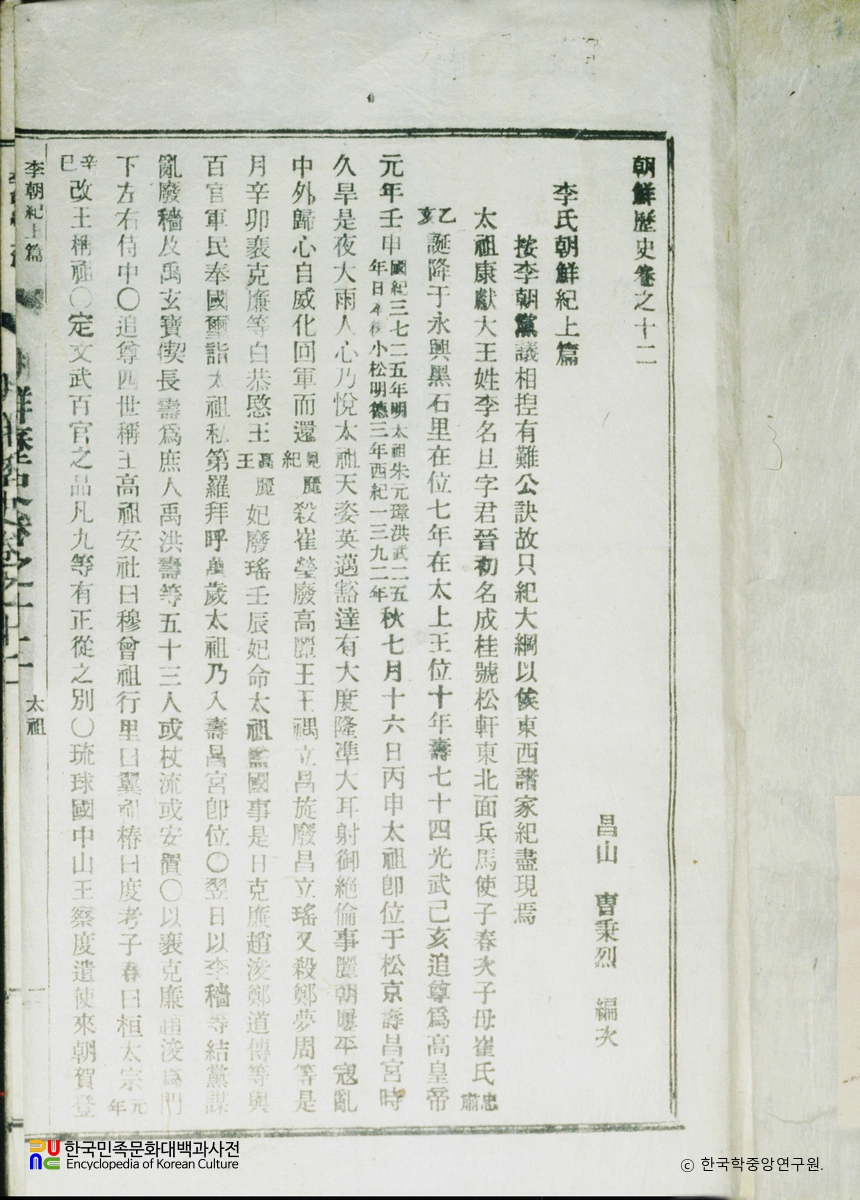 朝鮮歷史卷之十二
昌山 曺秉烈 編次
李氏朝鮮紀上篇
按李朝黨議相揑有難公訣故只紀大綱以俟東西諸家紀盡現焉
太祖康獻大王姓李名旦字君晉初名成桂號松軒東北面兵馬使子春次子母崔氏忠肅
乙亥誕降于永興黑石里在位七年在太上王位十年壽七十四光武己亥追尊爲高皇帝
元年壬申國紀三七二五年明太祖朱元璋洪武二五年日本後小松明德三年西紀一三九二年秋七月十六日丙申太祖卽位于松京壽昌宮時
久旱是夜大雨人心乃悅太祖天姿英邁豁達有大度隆準大耳射御絶倫事麗朝屢平寇亂
中外歸心自威化回軍而還見麗紀殺崔瑩廢高麗王王禑立昌旋廢昌立瑤又殺鄭夢周等是
月辛卯裵克廉等白恭愍王高麗王妃廢瑤壬辰妃命太祖監國事是日克廉趙浚鄭道傳等與
百官軍民奉國璽詣太祖私第羅拜呼萬歲太祖乃入壽昌宮卽位〇翌日以李穡等結黨謀
亂廢穡及禹玄寶偰長壽爲庶人禹洪壽等五十三人或杖流或安置〇以裵克廉趙浚爲門
下左右侍中〇追尊四世稱王高祖安社曰穆曾祖行里曰翼祖椿曰度考子春曰桓太宗元年
辛巳改王稱祖〇定文武百官之品凡九等有正從之別〇琉球國中山王察度遣使來朝賀登
李朝紀上篇
太祖
一
한국민족문화대백과사전
Encyclopedia of Korean Culture
ⓒ 한국학중앙연구원.